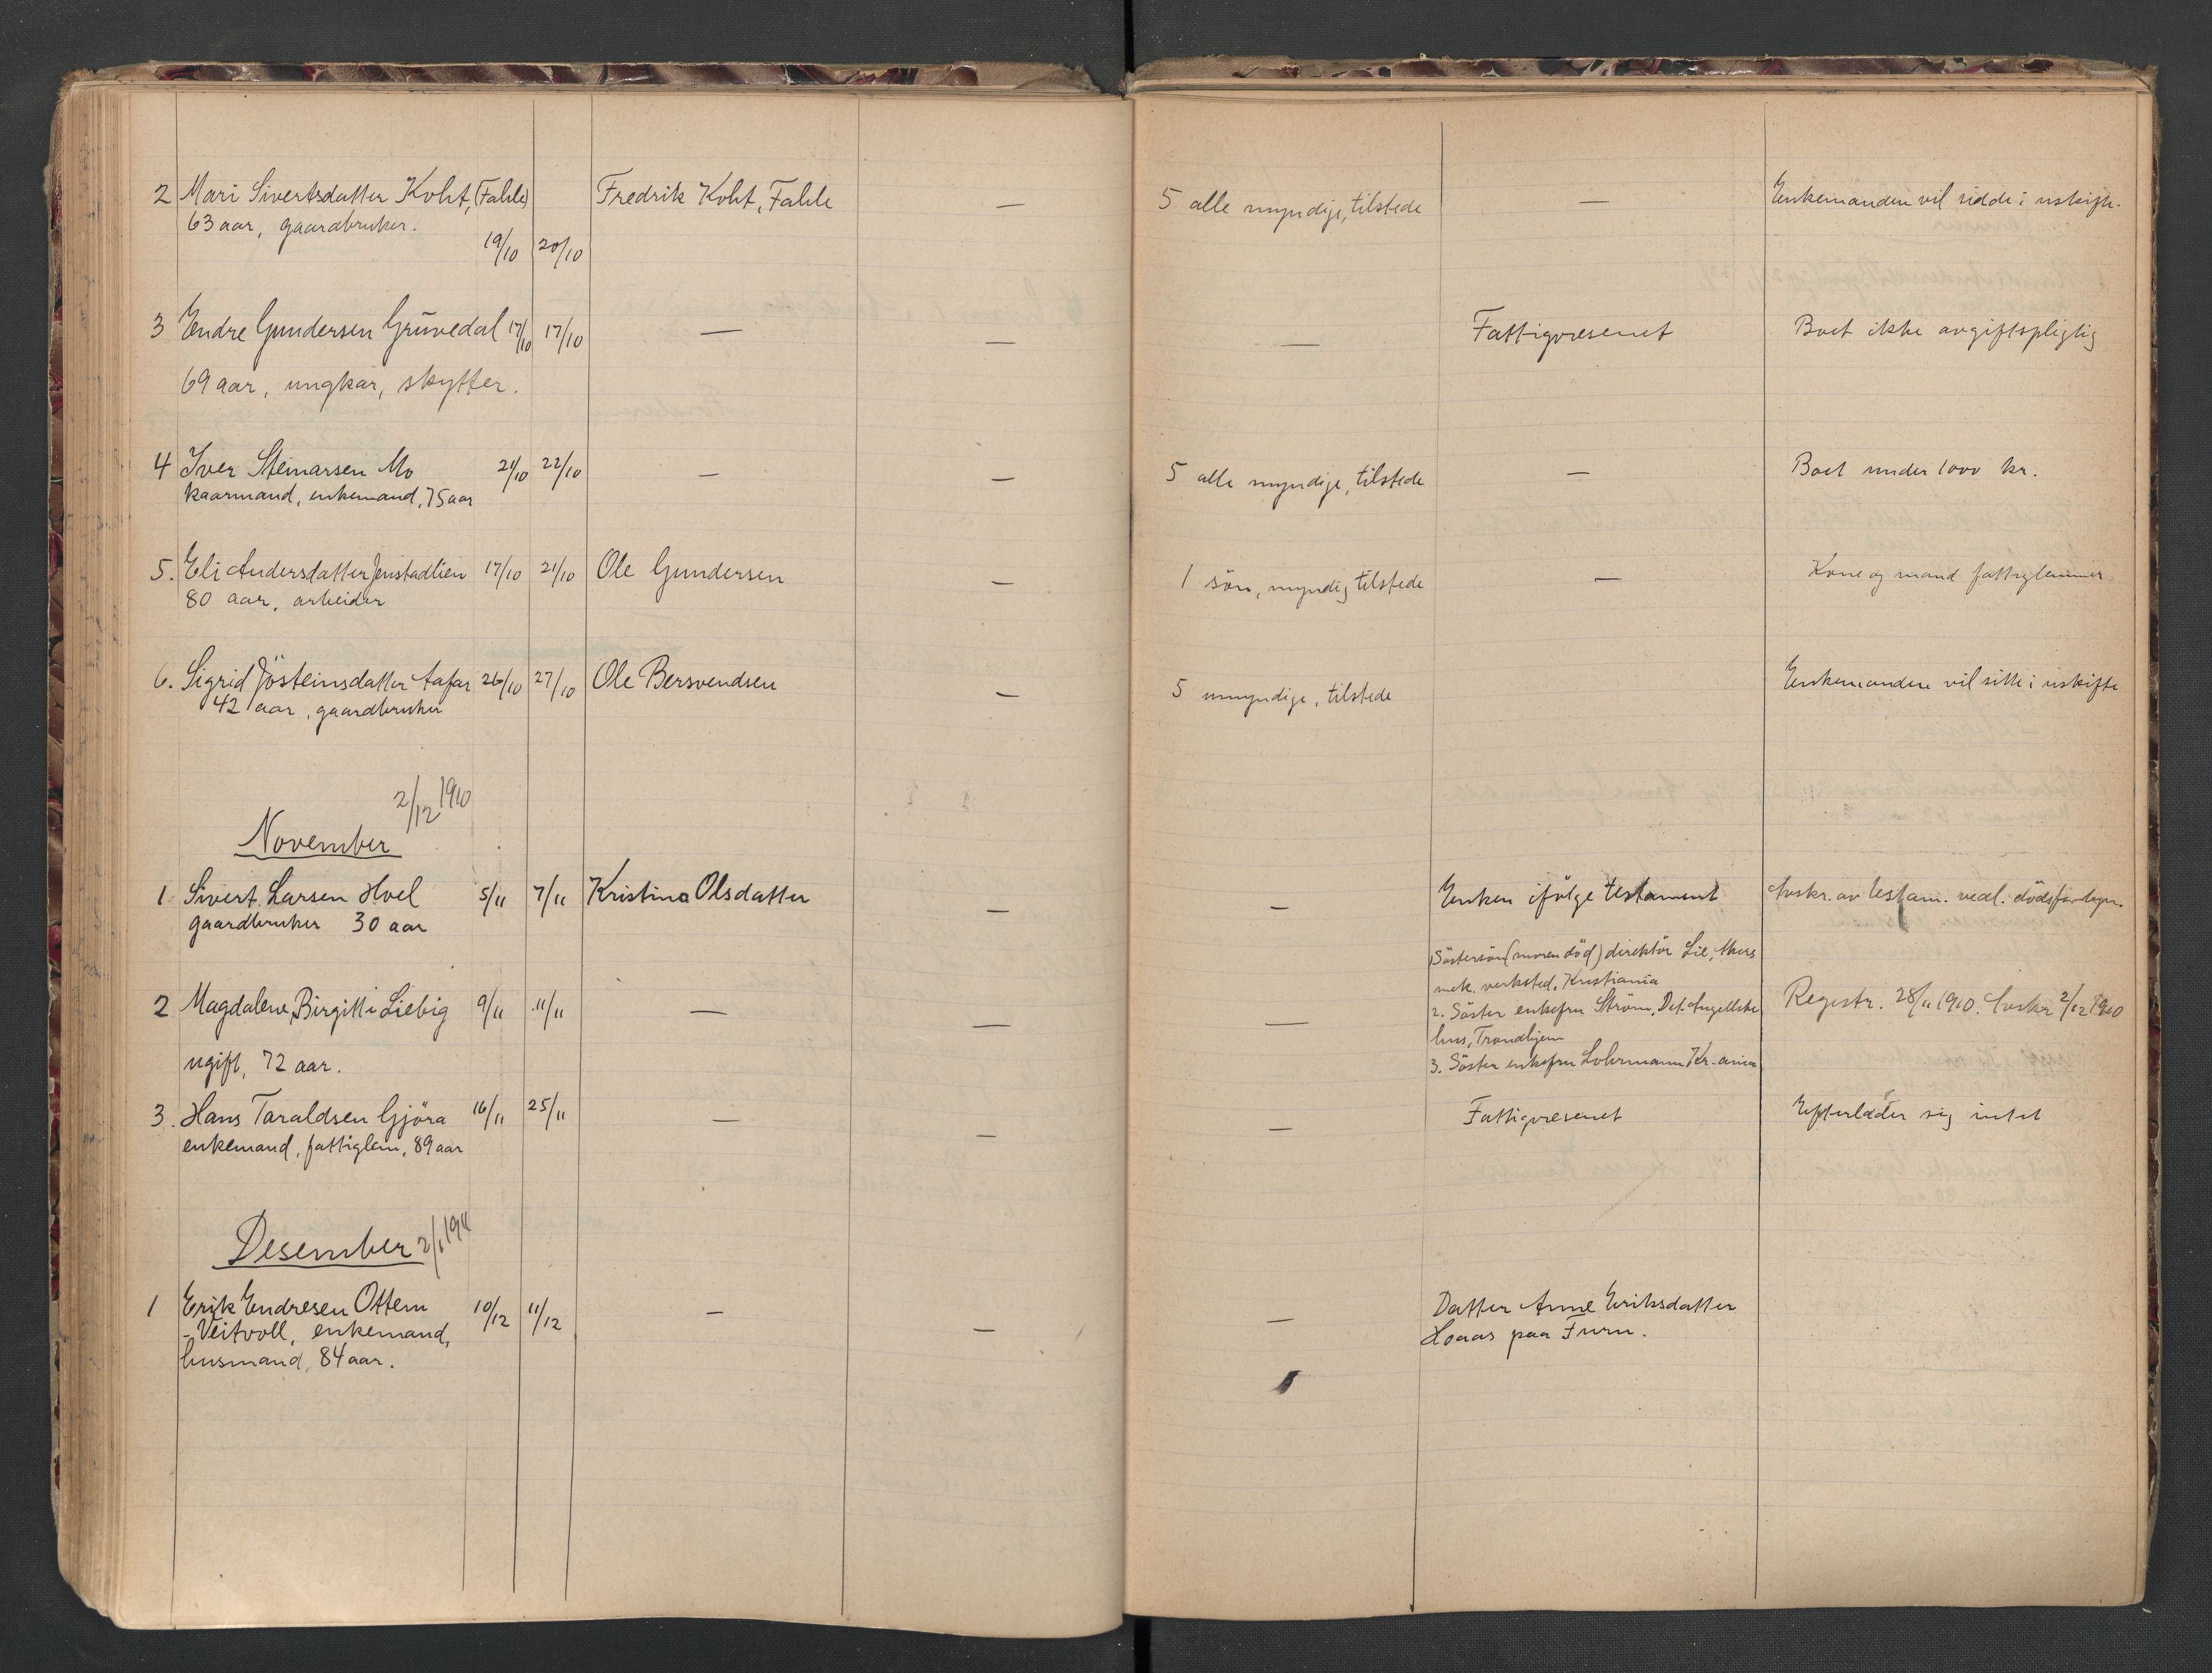 2 Mari Sivertsdatter Koht, (Fahle) Fredrik Koht, Fahle — 5 alle myndige, tilstede — Enkemanden vil sidde i uskifte.
63 aar, gaardbruker. 19/10 20/10
3 Endre Gundersen Grüvedal 17/10 17/10 — — — Fattigvesenet Boet ikke avgiftspligtig
69 aar, ungkar, skytter.
4 Iver Steinarsen Mo 21/10 22/10 — — 5 alle myndige, tilstede — Boet under 1000 kr.
kaarmand, enkemand, 75 aar
5. Eli Andersdatter Jenstadlien 17/10 21/10 Ole Gundersen — 1 sön, myndig tilstede — Kone og mand fattiglemmer
80 aar, arbeider
6. Sigrid Jösteinsdatter Aafar 26/10 27/10 Ole Bersvendsen — 5 umyndige, tilstede Enkemanden vil sitte i uskifte
42 aar, gaardbruker
2/12 1910
November
1 Sivert Larsen Hvel 5/11 7/11 Kristina Olsdatter — — Enken ifölge testament Avskr. av testam. vedl. dödsfaldspr.
gaardbruker 30 aar
Söstersön (moren död) direktör Lie, Akers
mek. verksted, Kristiania
2 Magdalene Birgitte Liebig 9/11 11/11 — — — 2. Söster enkefru Ström, Det Angellske Registr. 28/11 1910. Avskr 2/12 1910
hus, Trondhjem
ugift, 72 aar. 3. Söster enkefru Lohrmann Kr.ania
3. Hans Taraldsen Gjöra 16/11 25/11 — — — Fattigvesenet Efterlater sig intet
enkemand, fattiglem, 89 aar
Desember 2/1 1911
1 Erik Endresen Ottem 10/12 11/12 — — — Datter Anne Eriksdatter
- Veitvoll, enkemand, Hoaas paa Furu.
husmand, 84 aar.